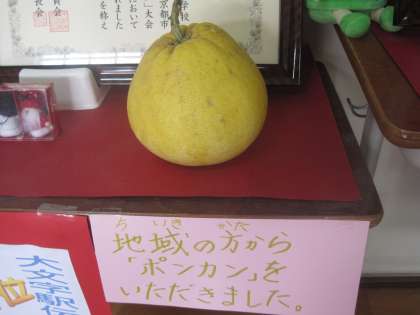 学校
京都市
」大会
において
れました
を称え
長会
ち いき かた
地域の方から
「ポンカン」を
いただきました。
大文字駅伝